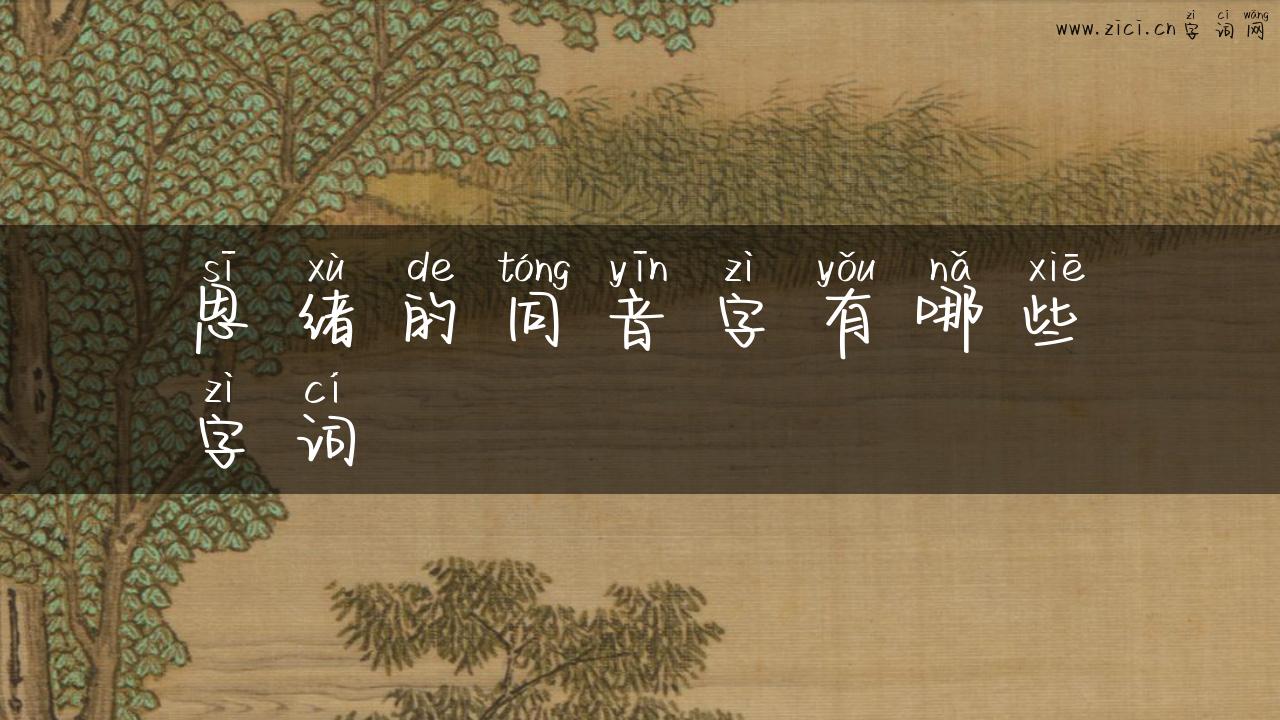 www.zici.cn 字词网
zì cí wǎng
sī xù de tóng yīn zì yǒu nǎ xiē
思绪的同音字有哪些
zì cí
字词